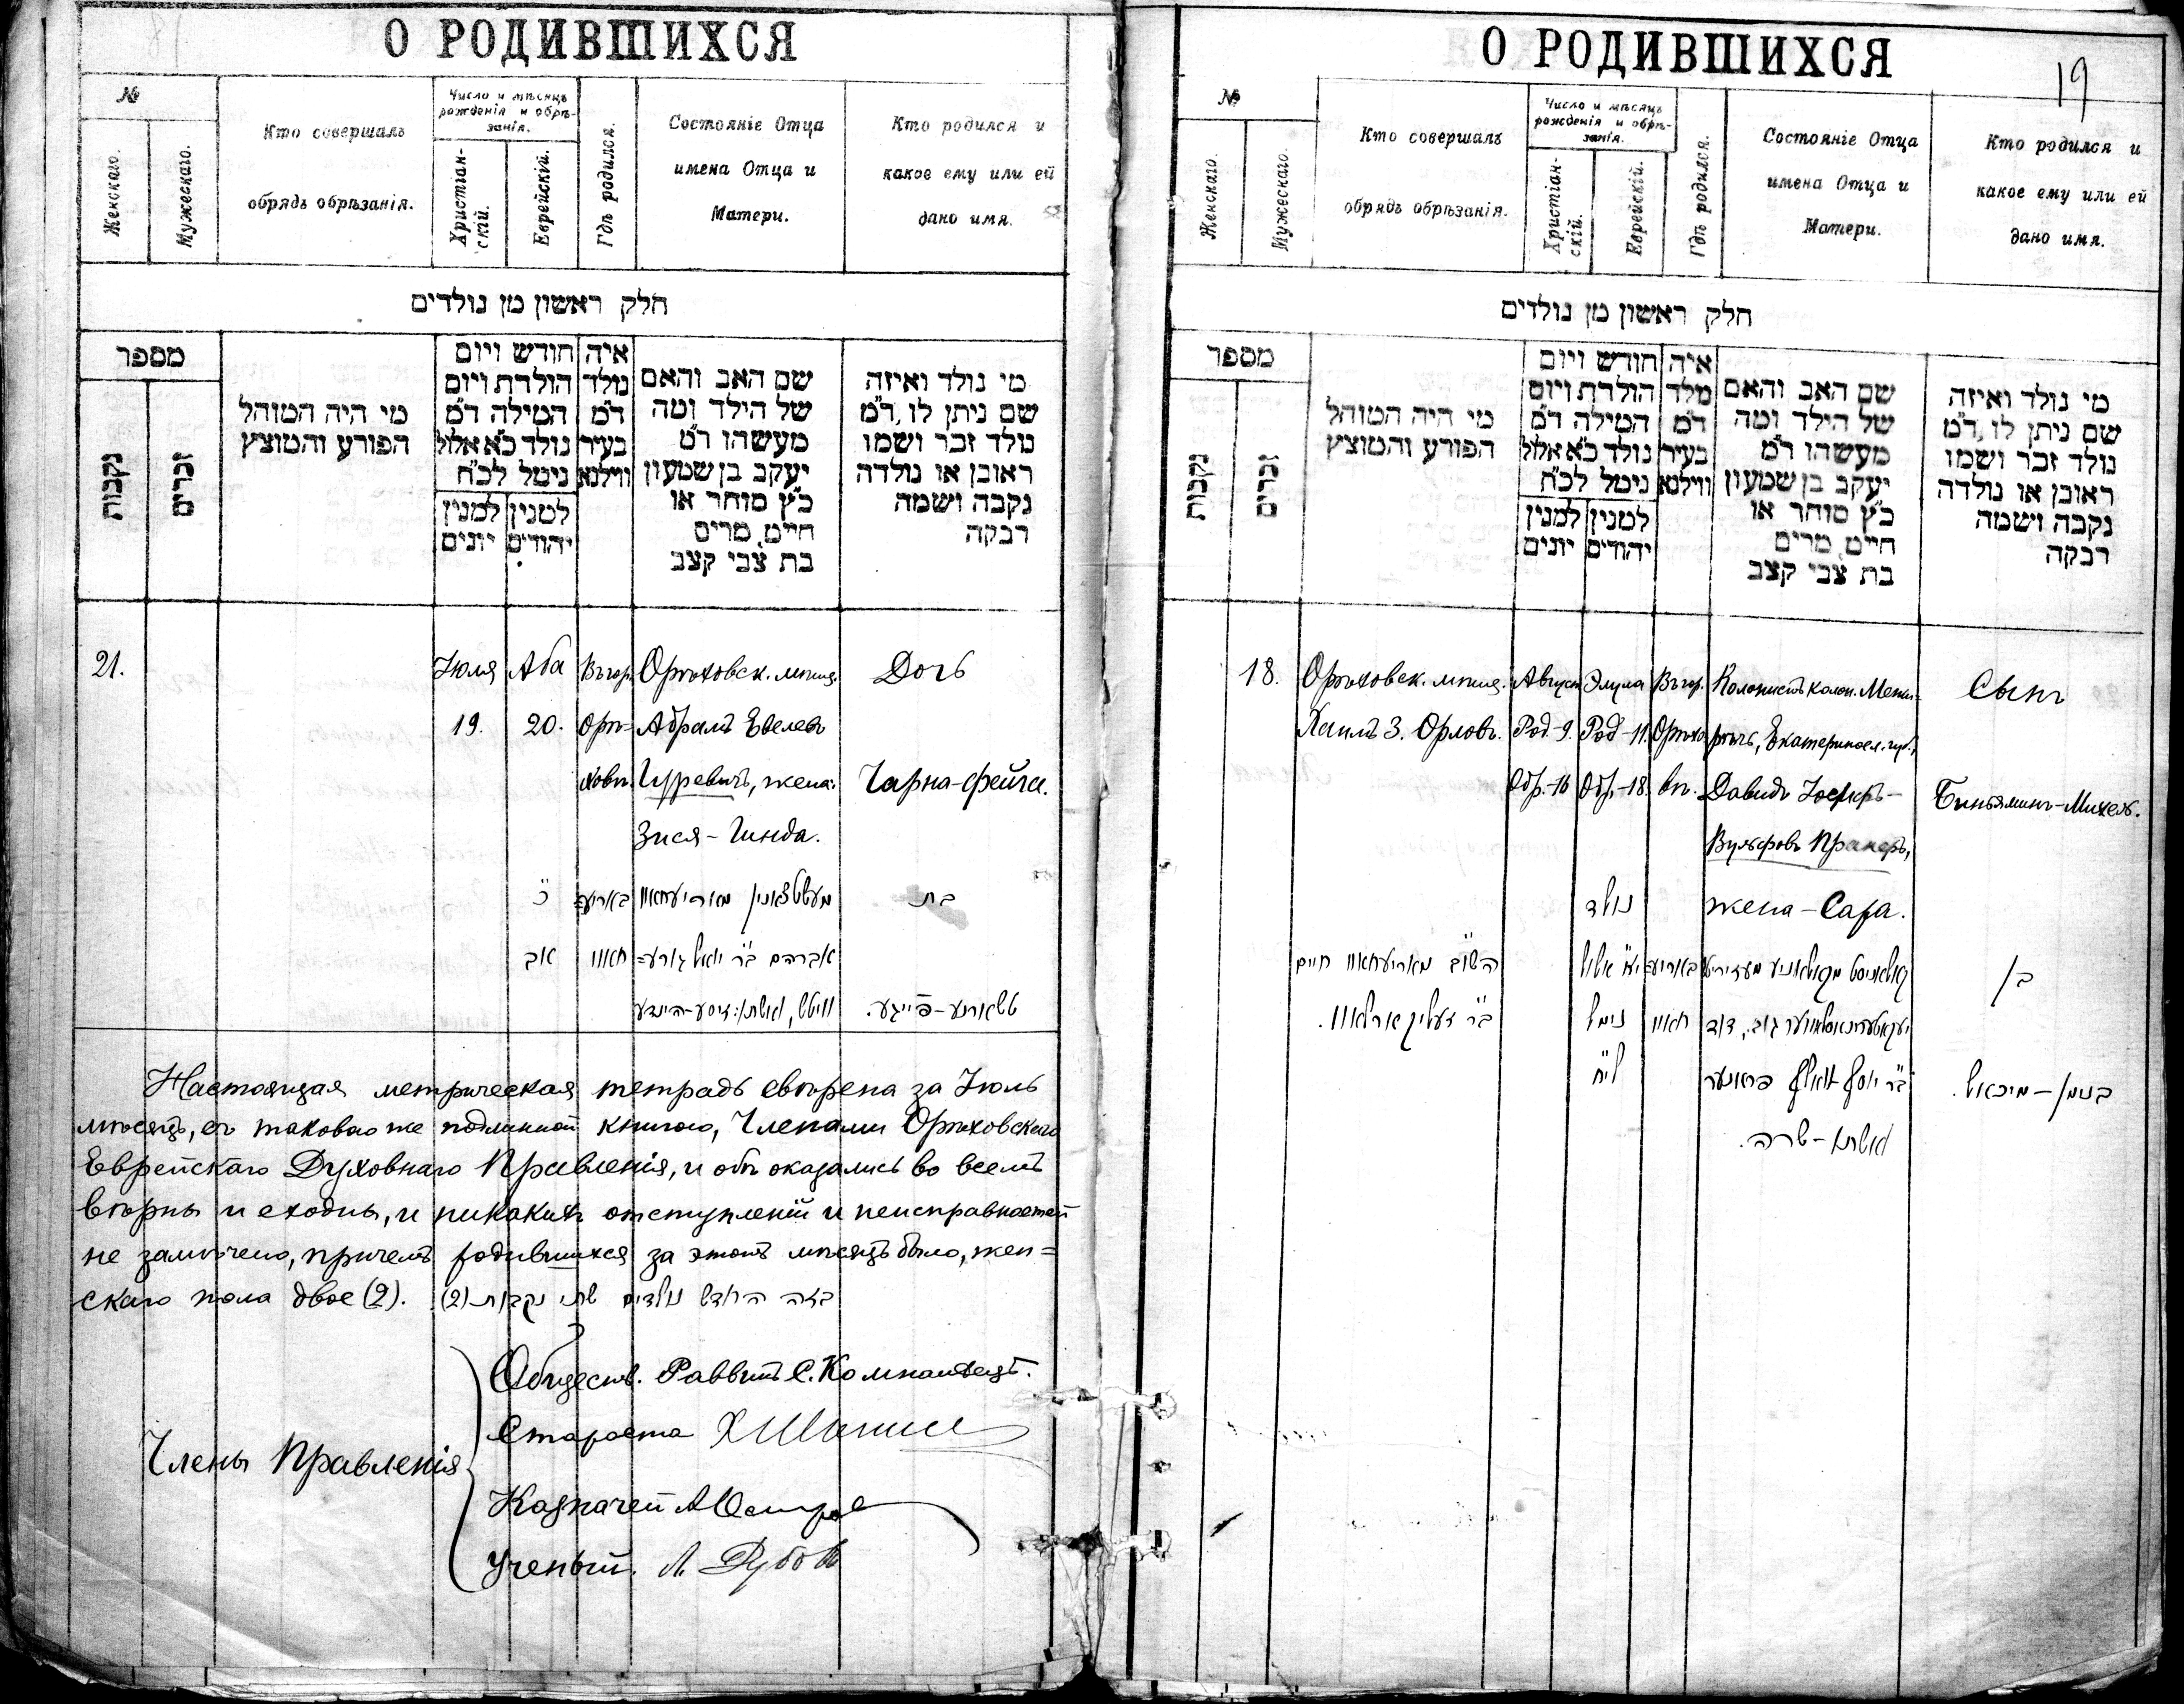 О РОДИВШИХСЯ
№
Женскаго.
Мужескаго.
Кто совершалъ
обрядъ обрѣзанія.
Число и мѣсяцъ
рожденія и обрѣ-
занія.
Христіан-
скій.
Еврейскій.
Гдѣ родился.
Состояніе Отца
имена Отца и
Матери.
Кто родился и
какое ему или ей
дано имя.
חלק ראשון מן נולדים
מספר
נקבות
זכרים
מי היה המוהל
הפורע והמוצץ
חודש ויום
הולדת ויום
המילה ד״מ
נולד כ״א אלול
נימל לכ״ח
למנין
יונים
למנין
יהודים
איה
נולד
ד״מ
בעיר
ווילנא
שם האב והאם
של הילד ומה
מעשהו ד״מ
יעקב בן שמעון
כ״ץ סוחר או
חיים, מרים
בת צבי קצב
מי נולד ואיזה
שם ניתן לו, ד״מ
נולד זכר ושמו
ראובן או נולדה
נקבה ושמה
רבקה
21.
Іюля
19.
Аба
20.
Въ гор.
Орѣ-
ховѣ
Орѣховск. мѣщ.
Абрамъ Евелевъ
Гуревичъ, жена:
Зися-Гинда.
Дочь
Чарна-Фейга.
כ׳
אב
באריע=
חאוו
מעשטצאנין מאריעחאוו
אברהם ב״ר יואל גורע=
וויטש, ואשתו: זיסע-הינדע
בת
טשארנע-פייגע.
Настоящая метрическая тетрадь свѣрена за Іюль
мѣсяцъ, съ таковою же подлинной книгою, Членами Орѣховскаго
Еврейскаго Духовнаго Правленія, и обѣ оказались во всемъ
вѣрны и сходны, и никакихъ отступленій и неисправностей
не замѣчено, причемъ родившихся за этотъ мѣсяцъ было, жен=
скаго пола двое (2). בזה החודש נולדים שתי נקבות (2)
Члены Правленія
Обществ. Раввинъ С. Компанѣецъ.
Староста
Казначей
Ученый. Л.
О РОДИВШИХСЯ
19
№
Женскаго.
Мужескаго.
Кто совершалъ
обрядъ обрѣзанія.
Число и мѣсяцъ
рожденія и обрѣ-
занія.
Христіан-
скій.
Еврейскій.
Гдѣ родился.
Состояніе Отца
имена Отца и
Матери.
Кто родился и
какое ему или ей
дано имя.
חלק ראשון מן נולדים
מספר
נקבות
זכרים
מי היה המוהל
הפורע והמוצץ
חודש ויום
הולדת ויום
המילה ד״מ
נולד כ״א אלול
נימל לכ״ח
למנין
יונים
למנין
יהודים
איה
מלד
ד״מ
בעיר
ווילנא
שם האב והאם
של הילד ומה
מעשהו ד״מ
יעקב בן שמעון
כ״ץ סוחר או
חיים, מרים
בת צבי קצב
מי נולד ואיזה
שם ניתן לו, ד״מ
נולד זכר ושמו
ראובן או נולדה
נקבה ושמה
רבקה
18.
Орѣховск. мѣщ.
Хаимъ З. Орловъ.
Август
Род-9.
Обр.-16
Элула
Род-11.
Обр.-18.
Въ гор.
Орѣхо
вѣ.
Колонистъ колон. Межи-
рѣчь, Екатериносл. губ.,
Давидъ Іосифъ-
Вульфовъ Пранеръ,
жена-Сара.
Сынъ
Биньяминъ-Михель.
השו״ב מאריעחאוו חיים
ב״ר זעליק ארלאוו.
נולד
י״א אלול
נימל
לי״ח
באריע=
חאוו
קאלאניסט מקאלאניע מעזיריטש
יעקאטערינאסלאווער גוב., דוד
ב״ר יוסף וואלף פראנער
ואשתו-שרה.
בן
בנימן-מיכאל.